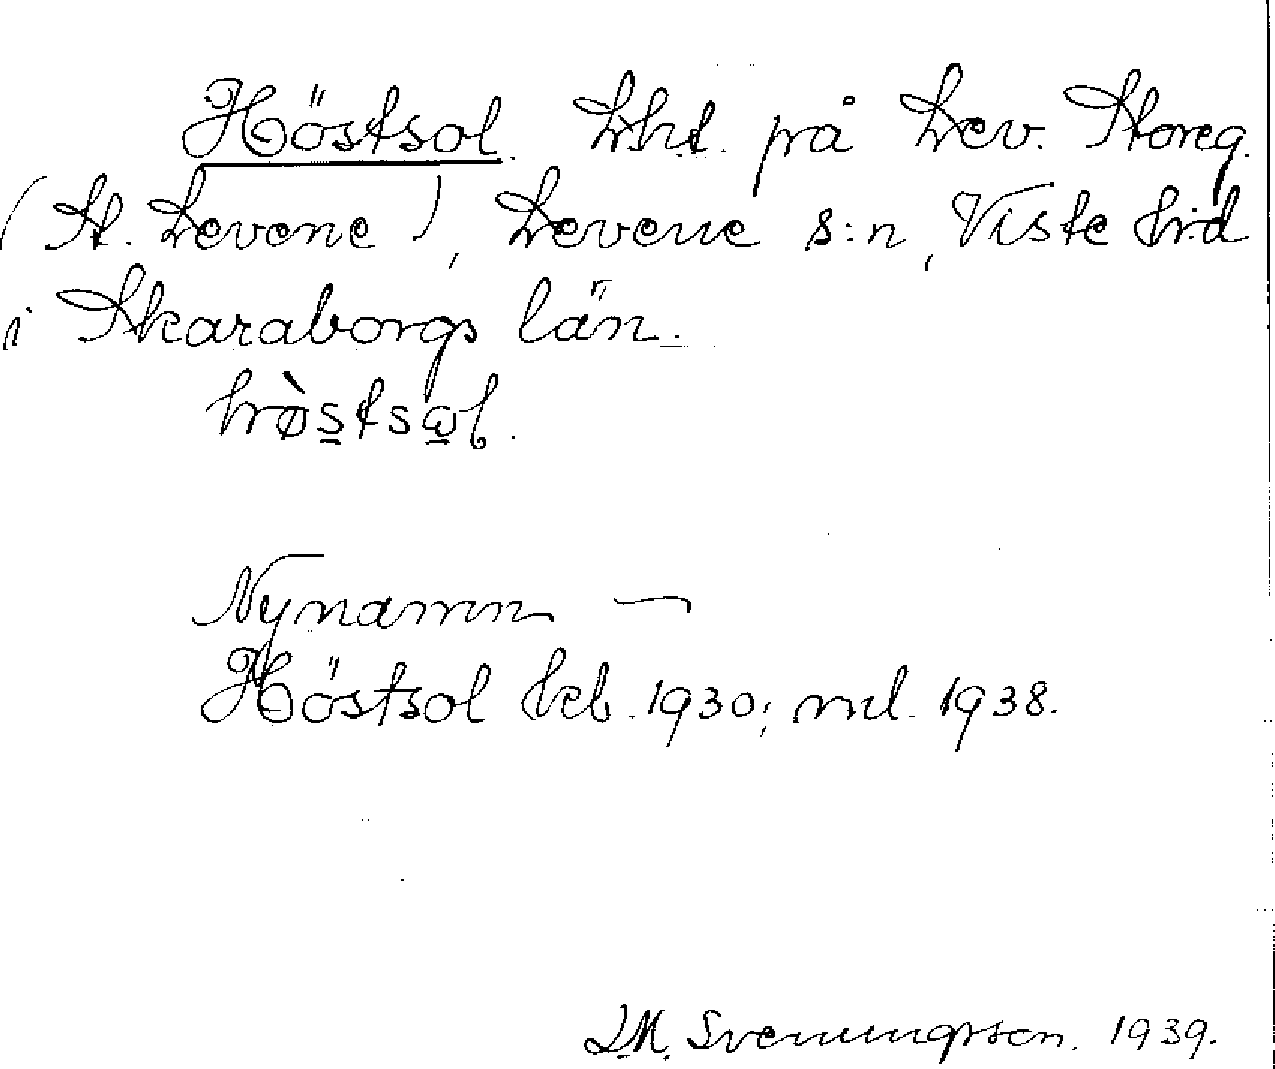 Höstsol. Lht. på Lev. Storeg.
(St. Levene), Levene s:n, Viste hrd
i Skaraborgs län.
hø̀s̲tsω̲ɽ.
Nynamn —
Höstsol kb. 1930; ml. 1938.
L.M. Svenungsson. 1939.